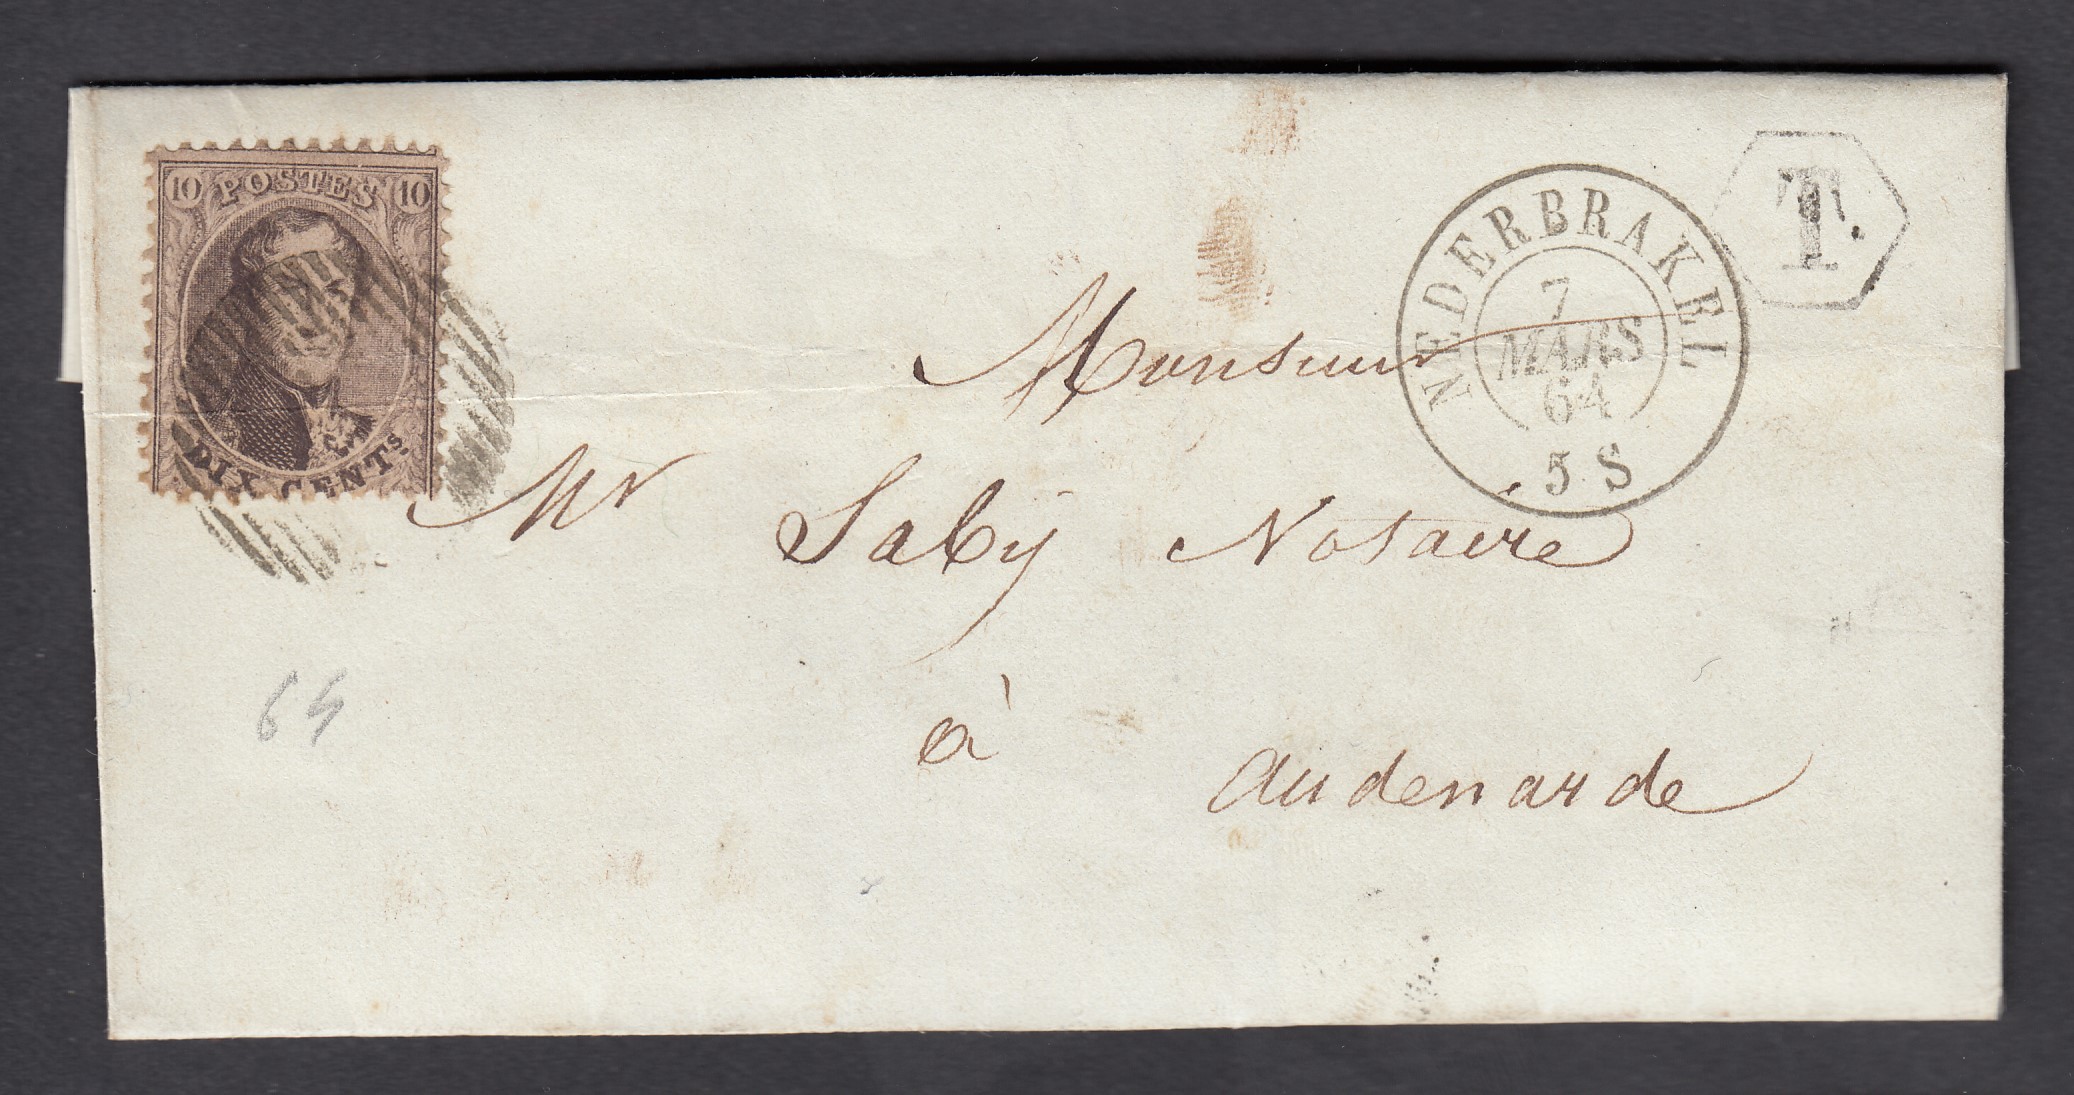 10 POSTES 10
DIX CENTS.
NEDERBRAKEL
7
MARS
64
5 S
T.
Monsieur
Mr Saby Notaire
à
Audenarde
64